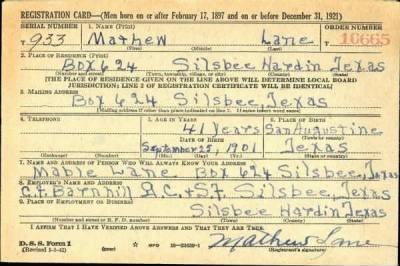 REGISTRATION CARD—(Men born on or after February 17, 1897 and on or before December 31, 1921)
SERIAL NUMBER 1. NAME (Print) ORDER NUMBER
T 933 Mathew Lane 10665
(First) (Middle) (Last)
2. PLACE OF RESIDENCE (Print)
Box 624 Silsbee Hardin Texas
(Number and street) (Town, township, village, or city) (County) (State)
[THE PLACE OF RESIDENCE GIVEN ON THE LINE ABOVE WILL DETERMINE LOCAL BOARD
JURISDICTION; LINE 2 OF REGISTRATION CERTIFICATE WILL BE IDENTICAL]
3. MAILING ADDRESS
Box 624 Silsbee, Texas
[Mailing address if other than place indicated on line 2. If same insert word same]
4. TELEPHONE 5. AGE IN YEARS 6. PLACE OF BIRTH
41 Years San Augustine
DATE OF BIRTH
September 25, 1901 Texas
7. NAME AND ADDRESS OF PERSON WHO WILL ALWAYS KNOW YOUR ADDRESS
Mable Lane Box 624 Silsbee, Texas
8. EMPLOYER'S NAME AND ADDRESS
Barnhill G.C. & S.F. Silsbee, Texas
9. PLACE OF EMPLOYMENT OR BUSINESS
Silsbee Hardin Texas
(Number and street or R. F. D. number) (Town) (County) (State)
I AFFIRM THAT I HAVE VERIFIED ABOVE ANSWERS AND THAT THEY ARE TRUE.
D. S. S. Form 1
(Revised 4-1-42) Mathew Lane